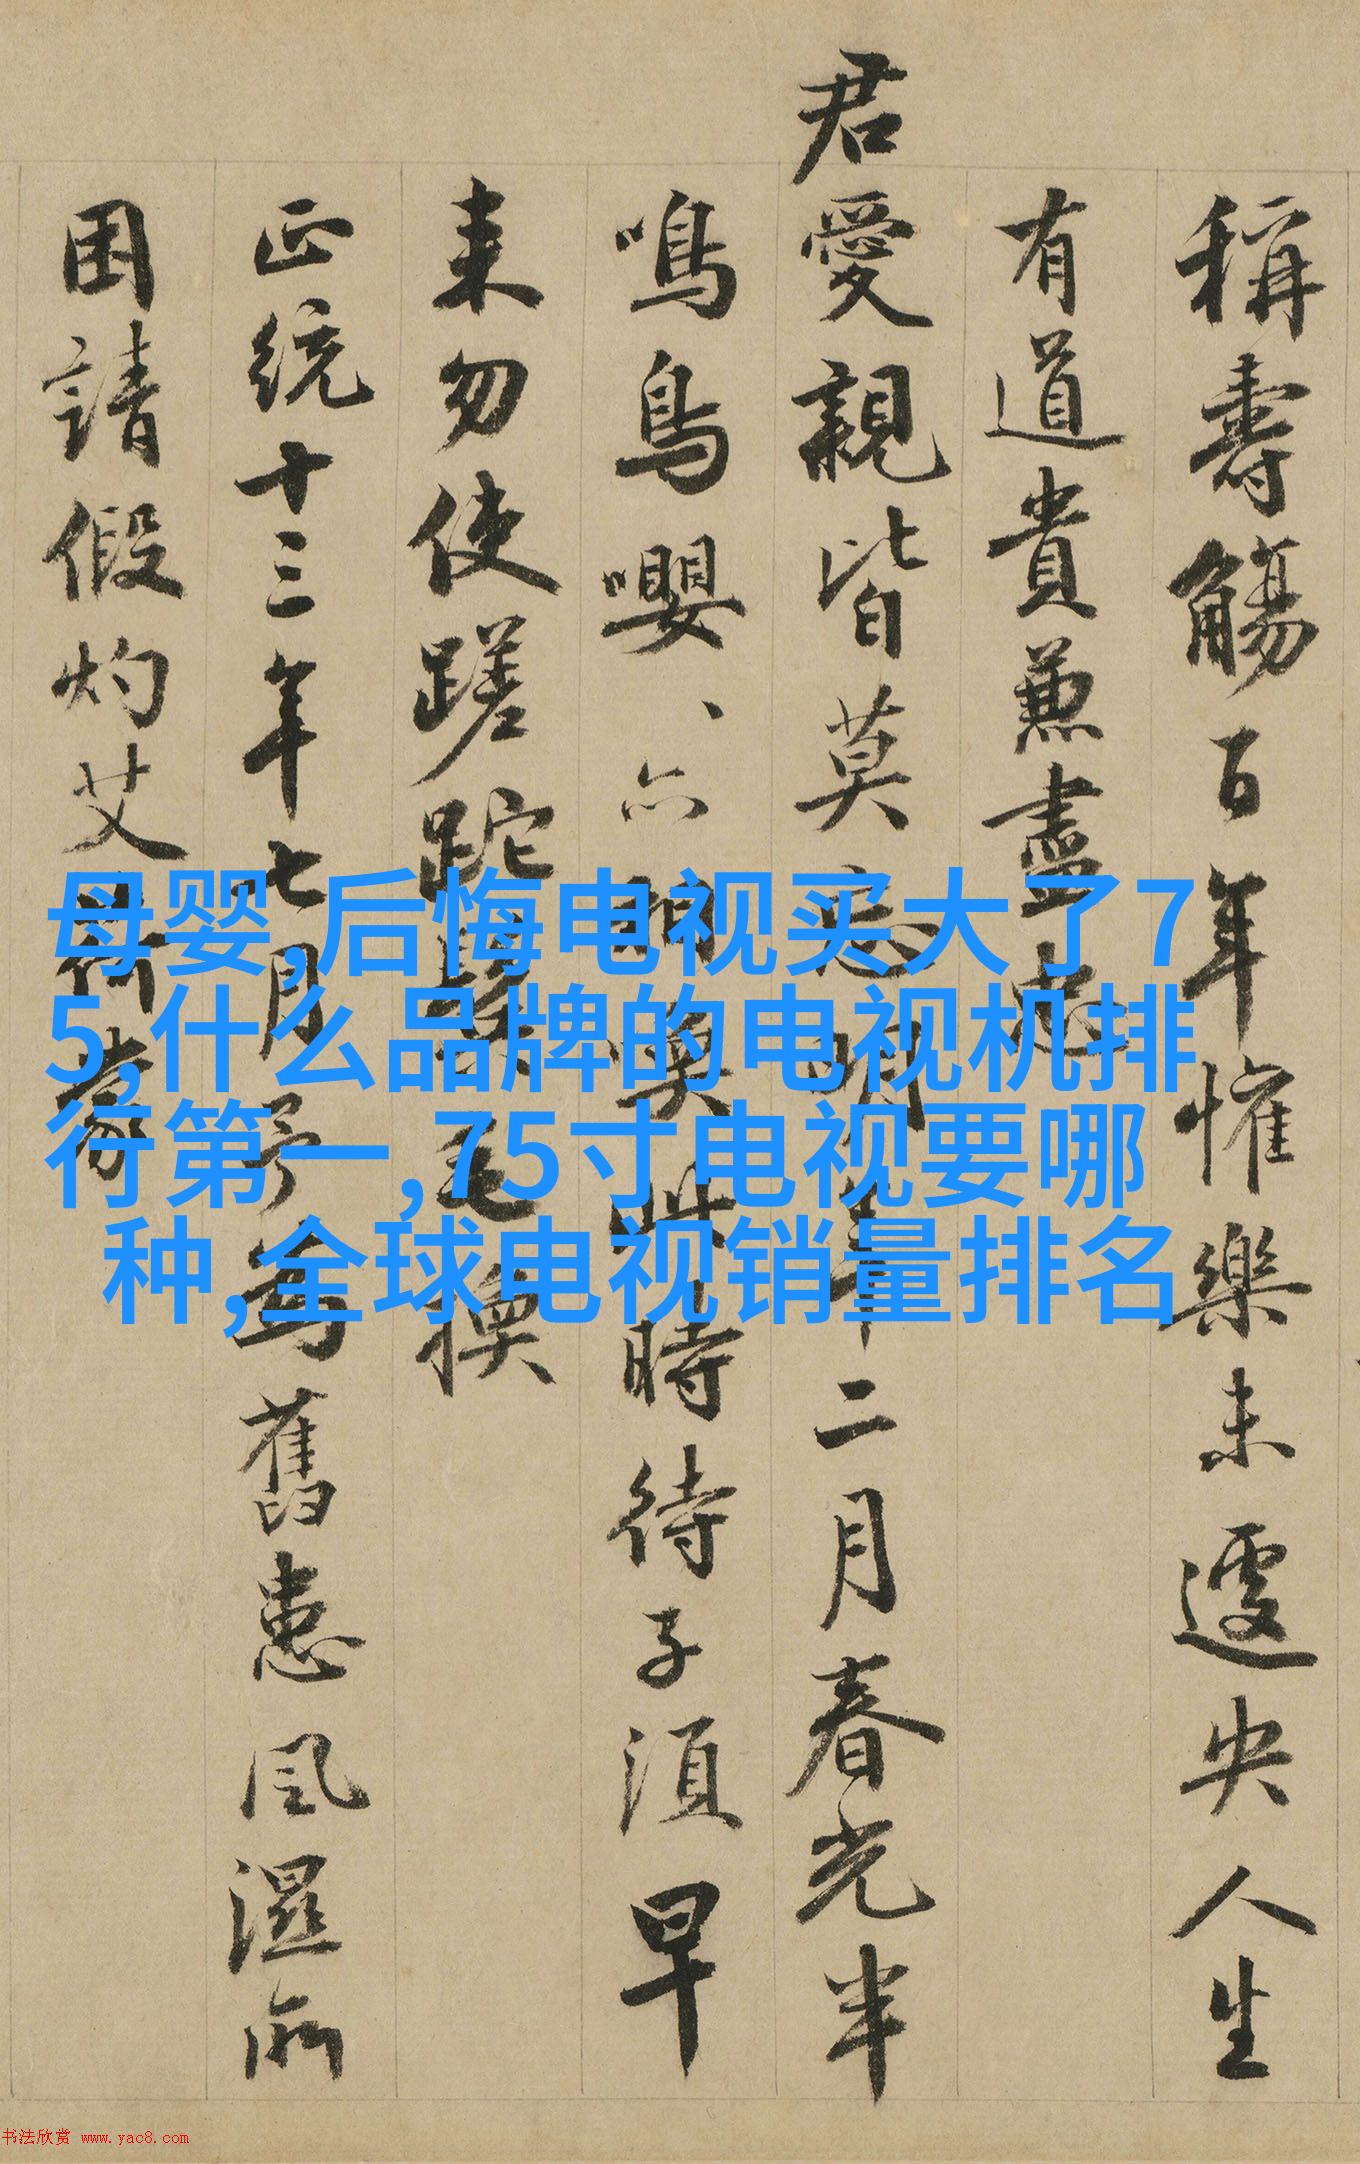 稱壽觴百年懽樂未遽央人生
有道貴兼盡忠
君愛親皆莫忘明年二月春光半
鳴鳥嚶、亦相喚此時待子須早
来勿使蹉跎鬢毛換
正統十三年七月予為舊患風濕所
困請假灼艾荷蒙
母婴,后悔电视买大了7
5,什么品牌的电视机排
行第一,75寸电视要哪
种,全球电视销量排名
书法欣赏 www.yac8.com